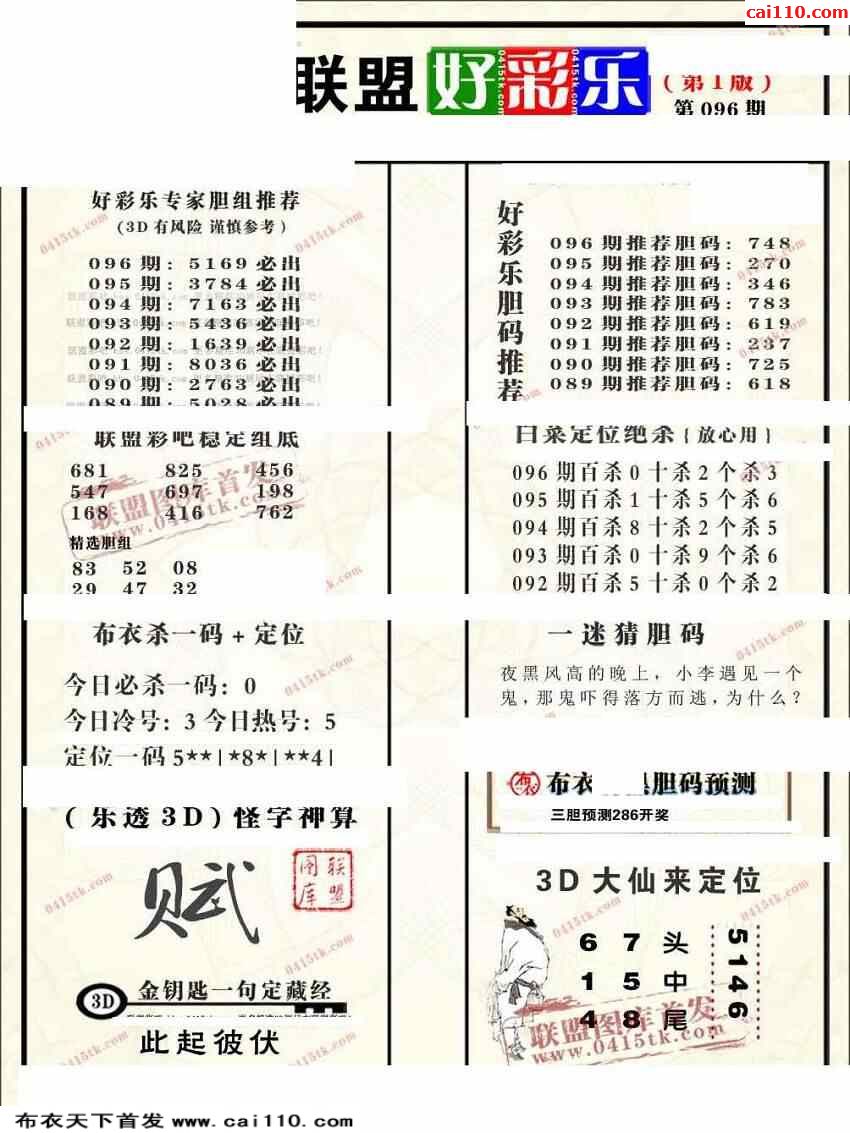 cai110.com
联盟好彩乐(第1版)
第096期
好彩乐专家胆组推荐
(3D有风险 谨慎参考)
096期:5169必出
095期:3784必出
094期:7163必出
093期:5436必出
092期:1639必出
091期:8036必出
090期:2763必出
089期:5028必出
好彩乐胆码推荐
096期推荐胆码:748
095期推荐胆码:270
094期推荐胆码:346
093期推荐胆码:783
092期推荐胆码:619
091期推荐胆码:237
090期推荐胆码:725
089期推荐胆码:618
联盟彩吧稳定组底
681 825 456
547 697 198
168 416 762
精选胆组
83 52 08
29 47 32
联盟图库首发
www.0415tk.com
白菜定位绝杀{放心用}
096期百杀0十杀2个杀3
095期百杀1十杀5个杀6
094期百杀8十杀2个杀5
093期百杀0十杀9个杀6
092期百杀5十杀0个杀2
布衣杀一码+定位
今日必杀一码:0
今日冷号:3今日热号:5
定位一码5**|*8*|**4|
一迷猜胆码
夜黑风高的晚上,小李遇见一个
鬼,那鬼吓得落方而逃,为什么?
布衣 胆码预测
三胆预测286开奖
(乐透3D)怪字神算
赋
联盟图库
3D 金钥匙一句定藏经
此起彼伏
3D大仙来定位
6 7 头
1 5 中
4 8 尾
5146
联盟图库首发
www.0415tk.com
0415tk.com
布衣天下首发www.cai110.com